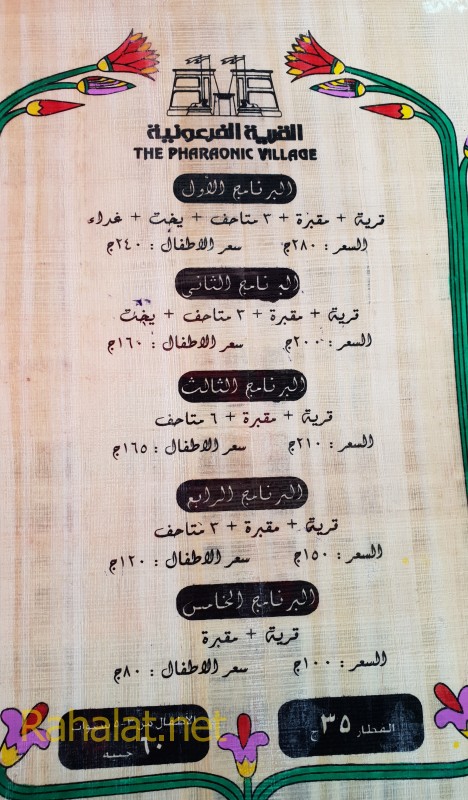 القرية الفرعونية
THE PHARAONIC VILLAGE
البرنامج الأول
قرية + مقبرة + ٣ متاحف + يخت + غداء
السعر : ٢٨٠ج سعر الاطفال : ٢٤٠ج
البرنامج الثانى
قرية + مقبرة + ٣ متاحف + يخت
السعر : ٢٠٠ج سعر الاطفال : ١٦٠ج
البرنامج الثالث
قرية + مقبرة + ٦ متاحف
السعر : ٢١٠ج سعر الاطفال : ١٦٥ج
البرنامج الرابع
قرية + مقبرة + ٣ متاحف
السعر : ١٥٠ج سعر الاطفال : ١٢٠ج
البرنامج الخامس
قرية + مقبرة
السعر : ١٠٠ج سعر الاطفال : ٨٠ج
القطار ٣٥ ج
الأطفال من
٦٠ جنيه
Rahalat.net